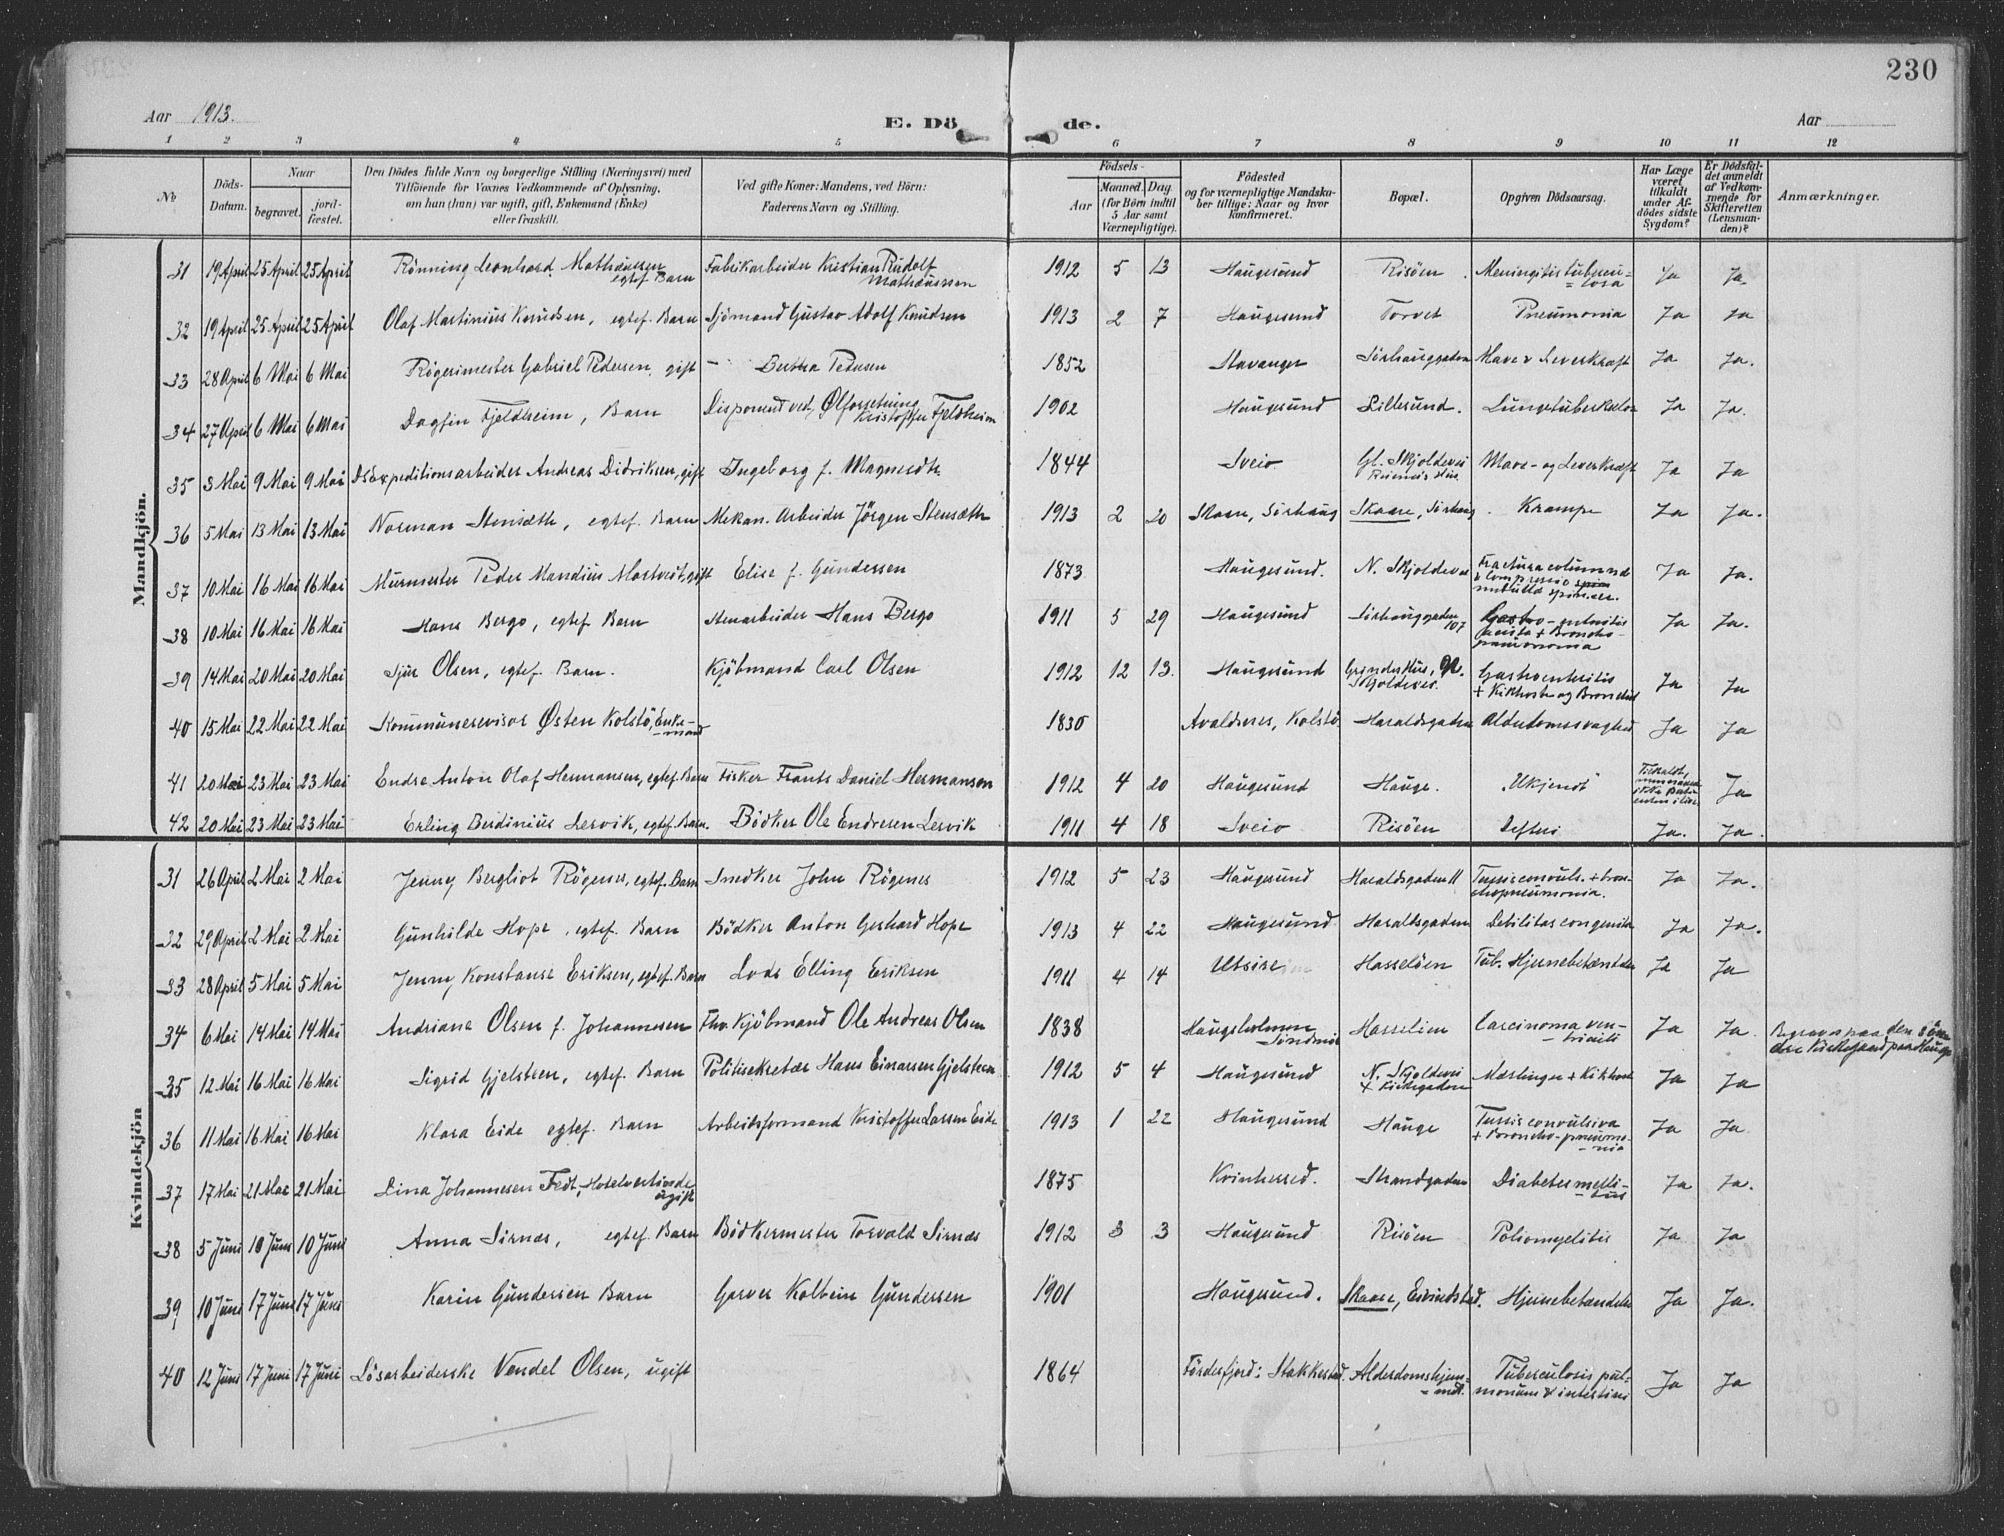 230
Aar 1913.
E. Dö de.
Aar
1 2 3 4 5 6 7 8 9 10 11 12
No
Döds-Datum.
Naar
begravet.
jord-fæstet.
Den Dödes fulde Navn og borgerlige Stilling (Næringsvei) med
Tilföiende for Voxnes Vedkommende af Oplysning,
om han (hun) var ugift, gift, Enkemand (Enke)
eller fraskilt.
Ved gifte Koner: Mandens, ved Börn:
Faderens Navn og Stilling.
Födsels-
Aar
Maaned. Dag.
(for Börn indtil
5 Aar samt
Værnepligtige).
Födested
og for værnepligtige Mandska-
ber tillige: Naar og hvor
konfirmeret.
Bopæl.
Opgiven Dödsaarsag.
Har Læge
været
tilkaldt
under Af-
dödes sidste
Sygdom?
Er Dödsfal-
det anmeldt
af Vedkom-
mende for
Skifteretten
(Lensman-
den)?
Anmærkninger.
Mandkjön.
31 19 April 25 April 25 April Rönning Leonhard Mathæusen egtef. Barn Fabrikarbeider Kristian Rudolf Mathæussen 1912 5 13 Haugesund Risöen Meningitis tubercu=losa Ja Ja.
32 19 April 25 April 25 April Olaf Martinius Knudsen, egtef. Barn Sjömand Gustav Adolf Knudsen 1913 2 7 Haugesund Torvet Pneumonia Ja Ja
33 28 April 6 Mai 6 Mai Rögerimester Gabriel Pedersen, gift – Bertha Pedersen 1852 Stavanger Sörhauggaden Mave & Leverkræft Ja Ja.
34 27 April 6 Mai 6 Mai Dagfin Fjeldheim, Barn Disponent ved Ölforretning Kristoffer Fjeldheim 1902 Haugesund Lillesund. Lungetuberkulos Ja Ja.
35 3 Mai 9 Mai 9 Mai DSExpeditionsarbeider Andreas Didriksen, gift Ingeborg f. Magnesdtr 1844 Sveio Gl. Skjoldevei Mave- og Leverkræft Ja Ja
36 5 Mai 13 Mai 13 Mai Norman Stensæth, egtef. Barn Mekan. Arbeider Jörgen Stensæth 1913 2 20 Skaare, Sörhaug Skaare, Sörhaug Krampe Ja Ja.
37 10 Mai 16 Mai 16 Mai Murmester Peder Mandius Mostveit, gift Elise f. Gundersen 1873 Haugesund. N. Skjoldevei Fractura columnæ & compressio medulla spinae. Ja Ja.
38 10 Mai 16 Mai 16 Mai Hans Bergo, egtef Barn Stenarbeider Hans Bergo 1911 5 29 Haugesund Sörhauggaden 107 Gastro-enteritis acuta + Broncho-pneumonia Ja Ja.
39 14 Mai 20 Mai 20 Mai Sjur Olsen, egtef. Barn. Kjöbmand Carl Olsen 1912 12 13. Haugesund Grindes Hus, Gl. Skjoldevei. Gastroenteritis + Kikhoste og Bronchit Ja Ja
40 15 Mai 22 Mai 22 Mai Kommunerevisor Østen Kolstö, Enke-mand 1830 Avaldsnes, Kolstö Haraldsgaden Alderdomssvaghed Ja Ja
41 20 Mai 23 Mai 23 Mai Endre Anton Olaf Hermansen, egtef. Barn Fisker Frants Daniel Hermansen 1912 4 20 Haugesund Hauge. "Ukjendt" Tilkaldt, Ja
42 20 Mai 23 Mai 23 Mai Erling Berdinius Lervik, egtef. Barn. Bödker Ole Endresen Lervik 1911 4 18 Sveio Risöen Difteri Ja. Ja.
Kvindekjön
31 26 April 2 Mai 2 Mai Jenny Bergliot Rögenes, egtef. Barn Snedker John Rögenes 1912 5 23 Haugesund Haraldsgaden 11 Tussis convuls. + bron-chopneumonia. Ja Ja.
32 29 April 2 Mai 2 Mai Gunhilde Hope, egtef. Barn Bödker Anton Gerhard Hope 1913 4 22 Haugesund Haraldsgaden Debilitas congenita Ja Ja.
33 28 April 5 Mai 5 Mai Jenny Konstanse Eriksen, egtef. Barn Lods Elling Eriksen 1911 4 14 Utsire Hasselöen Tub. Hjernebetændelse Ja Ja
34 6 Mai 14 Mai 14 Mai Andriane Olsen f. Johannesen Fhv. Kjöbmand Ole Andreas Olsen 1838 Haugsholmen Söndmör Hasselöen Carcinoma ven-triculi Ja Ja. Begraves paa den söndre Kirkegaard paa Hauge
35 12 Mai 16 Mai 16 Mai Sigrid Gjelsteen, egtef. Barn Politisekretær Hans Einarsen Gjelsteen 1912 5 4 Haugesund N. Skjoldevei + Kirkegaden Mæslinger + Kikhoste Ja Ja
36 11 Mai 16 Mai 16 Mai Klara Eide egtef. Barn Arbeidsformand Kristoffer Larsen Eide 1913 1 22 Haugesund Hauge Tussis convulsiva + Broncho-pneumo-nia Ja Ja.
37 17 Mai 21 Mai 21 Mai Lina Johannesen Fedt, Hotelvertinde ugift 1875 Kvinherred. Strandgaden Diabetes melli-tus Ja Ja.
38 5 Juni 10 Juni 10 Juni Anna Sirnæs, egtef. Barn Bödkermester Torvald Sirnæs 1912 3 3 Haugesund Risöen Poliomyelitis Ja Ja
39 10 Juni 17 Juni 17 Juni Karin Gundersen Barn Garver Kolbein Gundersen 1901 Haugesund. Skaare, Eivindstad. Hjernebetændelse Ja Ja.
40 12 Juni 17 Juni 17 Juni Lösarbeiderske Vendel Olsen, ugift 1864 Fördesfjord: Stakkestad. Alderdomshjemmet. Tuberculosis pul-monum & intestini Ja Ja